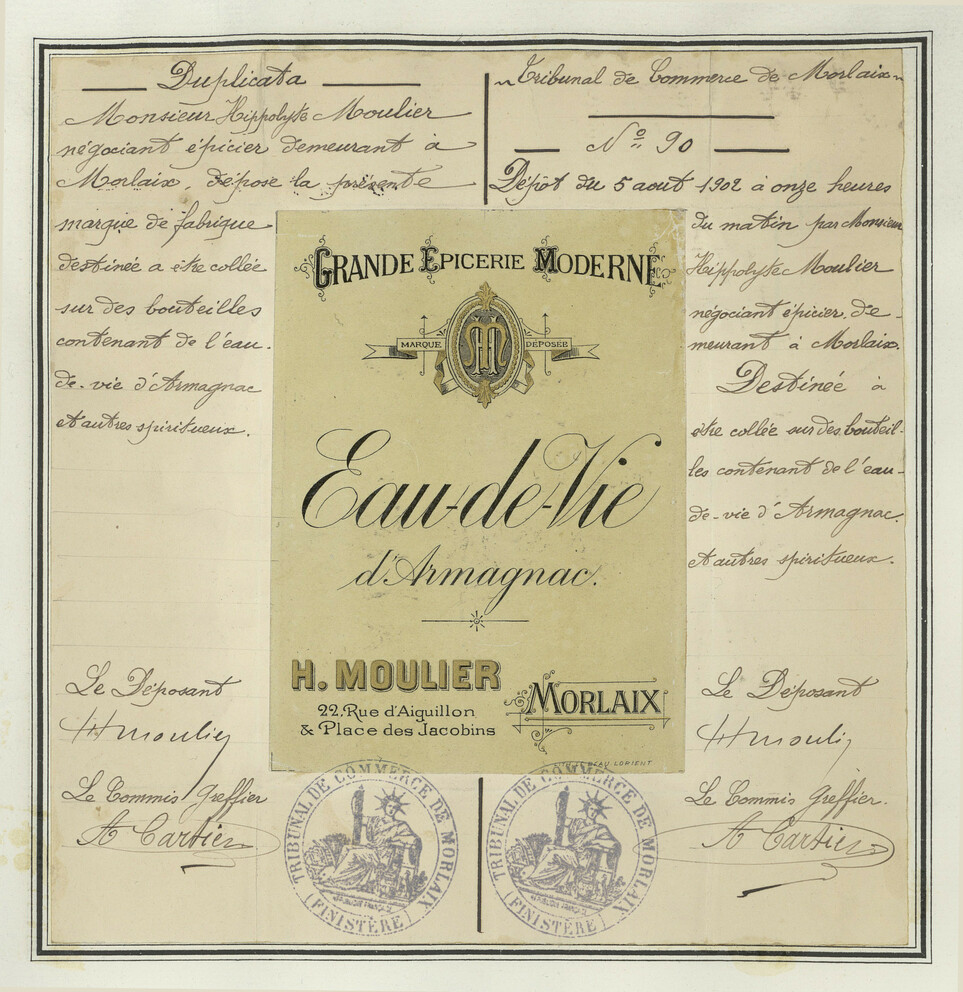 Duplicata
Monsieur Hippolyte Moulier
négociant épicier demeurant à
Morlaix, dépose la présente
marque de fabrique
destinée a être collée
sur des bouteilles
contenant de l'eau-
de-vie d'Armagnac
et autres spiritueux.
Le Déposant
HMoulier
Le Commis Greffier
A Cartier
Tribunal de Commerce de Morlaix
Nº 90
Dépôt du 5 aout 1902 à onze heures
du matin par Monsieur
Hippolyte Moulier
négociant épicier de-
meurant à Morlaix.
Destinée à
être collée sur des bouteil-
les contenant de l'eau-
de-vie d'Armagnac.
et autres spiritueux.
Le Déposant
HMoulier
Le Commis Greffier.
A Cartier
GRANDE EPICERIE MODERNE
MARQUE DÉPOSÉE
HM
Eau-de-Vie
d'Armagnac.
H. MOULIER
22, Rue d'Aiguillon
& Place des Jacobins
MORLAIX
LORIENT
TRIBUNAL DE COMMERCE DE MORLAIX
(FINISTÈRE)
TRIBUNAL DE COMMERCE DE MORLAIX
(FINISTÈRE)